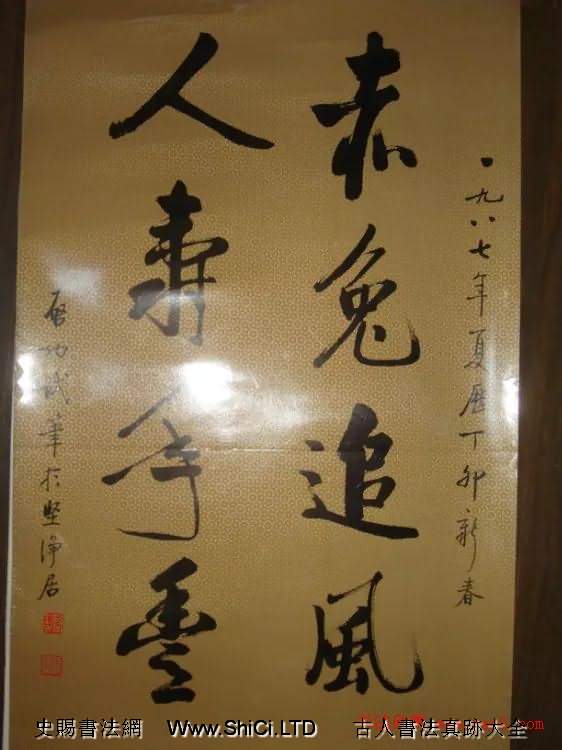 一九八七年夏历丁卯新春
赤兔追風
人壽年豊
啓功试筆於堅淨居
史賜書法網 Www.ShiCi.LTD 古人書法真跡大全